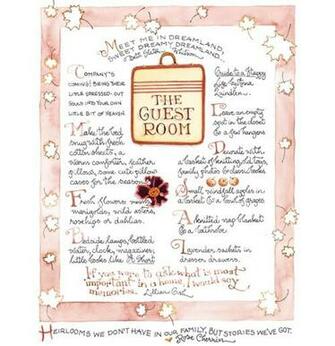 MEET ME IN DREAMLAND,
SWEET DREAMY DREAMLAND.
THE
GUEST
ROOM
COMPANY'S
COMING! BEING THEIR
OUT
INTO YOUR OWN
LITTLE BIT OF HEAVEN
Make the bed
snug with fresh
cotton sheets, a
warm comforter, feather
pillows, some cute pillow
cases for the season
Fresh flowers:
marigolds, wild asters,
rosehips or dahlias.
Bedside lamps, bottled
water, clock, magazines,
little books like A Short
Guide to a Happy
Life
Quindlen.
Leave an empty
spot in the closet
& a few hangers
Decorate with
a basket of knitting, old toys,
family photos &
Small windfall apples in
a basket & a bowl of grapes
A knitted nap blanket
& a bathrobe
Lavender sachets in
dresser drawers.
If you were to ask what is most
important in a home, I would say
memories. Lillian Gish
HEIRLOOMS WE DON'T HAVE IN OUR FAMILY, BUT STORIES WE'VE GOT.
Rose Chernin